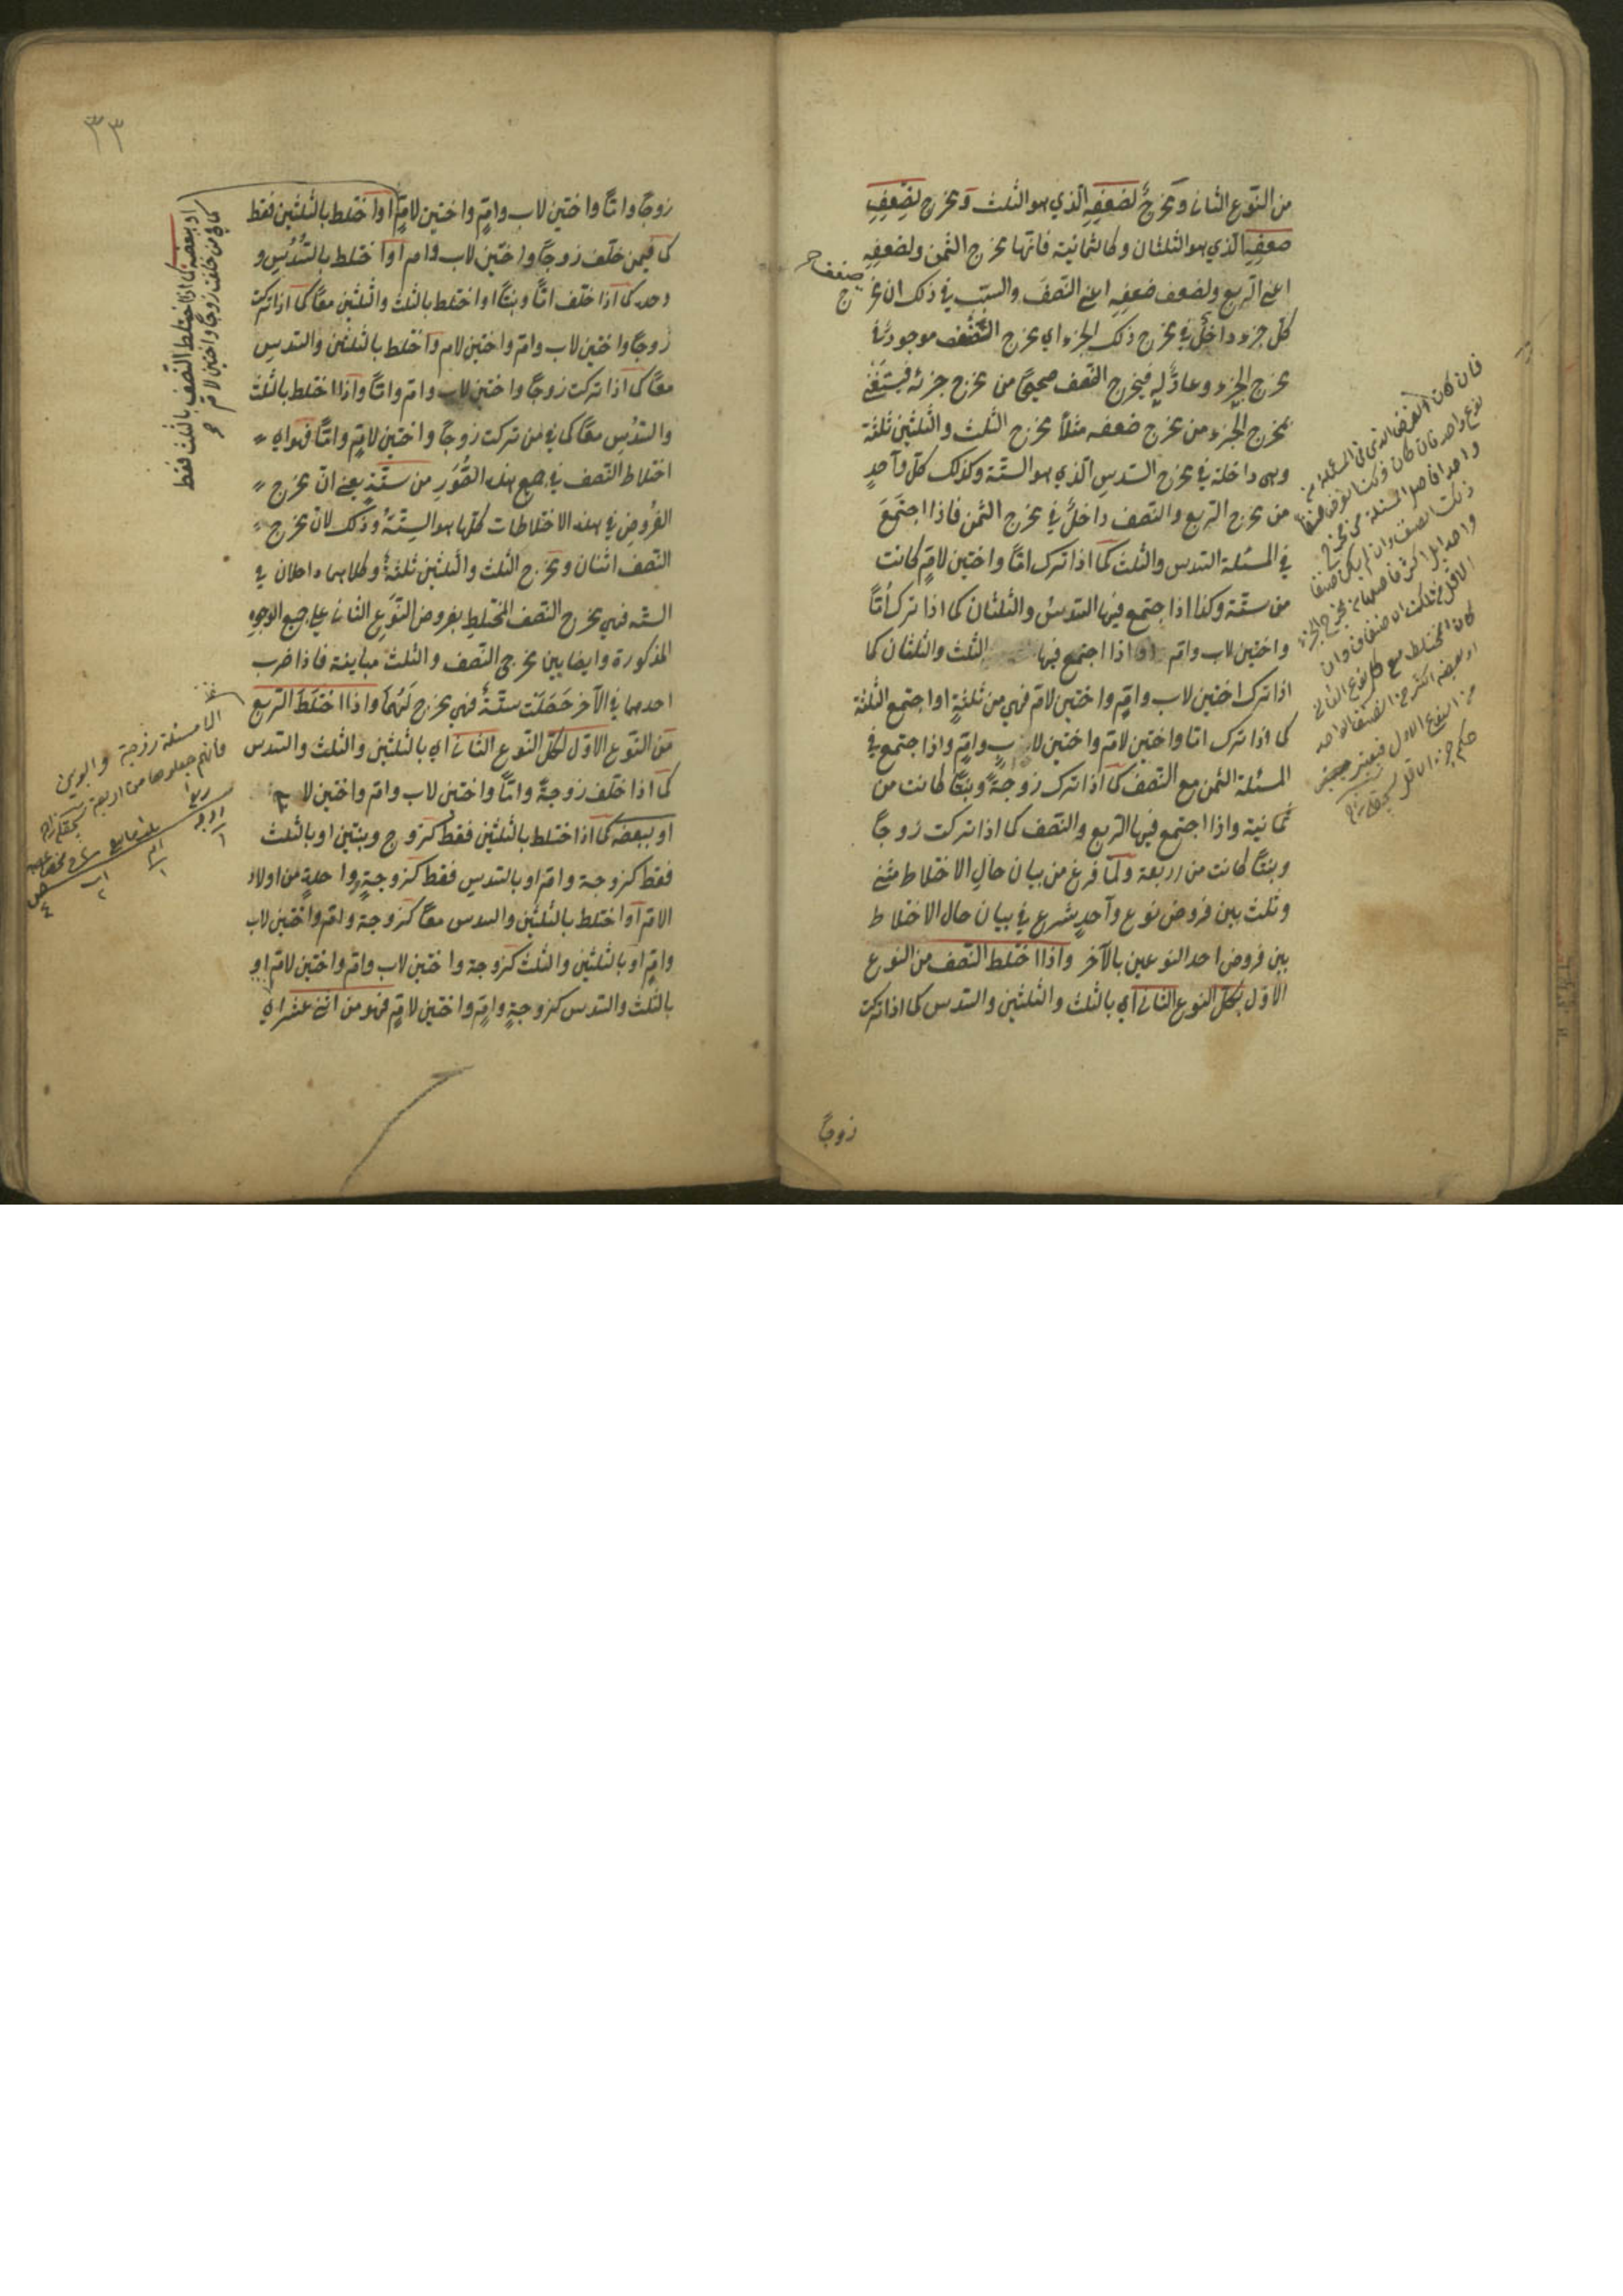 من النوع الثاني ومخرج لضعفه الذي هو الثلث ومخرج لضعف
ضعفه الذي هو الثلثان وكالثمانية فانها مخرج الثمن ولضعفه
اعني الربع ولضعف ضعفه اعني النصف والسبب في ذلك ان مخرج
كل جزء داخل في مخرج ذلك الجزء اي مخرج الضعف موجود في
مخرج الجزء وعاد له فيخرج الضعف صحيحا من مخرج جزئه فيستغني
بمخرج الجزء من مخرج ضعفه مثلا مخرج الثلث والثلثين ثلثة
وهي داخلة في مخرج السدس الذي هو الستة وكذلك كل واحد
من مخرج الربع والنصف داخل في مخرج الثمن فاذا اجتمع
في المسئلة السدس والثلث كما اذا ترك اما واختين لام كانت
من ستة وكذا اذا اجتمع فيها السدس والثلثان كما اذا ترك اما
واختين لاب وام او اذا اجتمع فيها الثلث والثلثان كما
اذا ترك اختين لاب وام واختين لام فهي من ثلثة او اجتمع الثلثة
كما اذا ترك اما واختين لام واختين لاب وام واذا اجتمع في
المسئلة الثمن مع النصف كما اذا ترك زوجة وبنتا كانت من
ثمانية واذا اجتمع فيها الربع والنصف كما اذا تركت زوجا
وبنتا كانت من اربعة ولما فرغ من بيان حال الاختلاط مثنى
وثلث بين فروض نوع واحد شرع في بيان حال الاختلاط
بين فروض احد النوعين بالآخر واذا اختلط النصف من النوع
الاول بكل النوع الثاني اي بالثلث والثلثين والسدس كما اذا تركت
زوجا
ضعف
فان كان الفرض الذي في المسئلة من
نوع واحد فان كان
واحدا فاصل المسئلة من مخرج
ذلك الصنف وان لم يكن صنفا
واحدا بل اكثر فاصلها من مخرج الجزء
الاقل من تلك الاصناف وان
كان المختلط مع كل نوع الثاني
او بعضه اكثر من الصنف الواحد
من النوع الاول فيعتبر
حكم جزء الاقل
٣٣
زوجا واما واختين لاب وام واختين لام او اختلط بالثلثين فقط
كما فيمن خلف زوجا واختين لاب وام او اختلط بالسدس و
وحده كما اذا خلف اما وبنتا او اختلط بالثلث والثلثين معا كما اذا تركت
زوجا واختين لاب وام واختين لام او اختلط بالثلثين والسدس
معا كما اذا تركت زوجا واختين لاب وام واما واذا اختلط بالثلث
والسدس معا كما في من تركت زوجا واختين لام واما فهو اي
اختلاط النصف في جميع هذه الصور من ستة يعني ان مخرج
الفروض في هذه الاختلاطات كلها هو الستة وذلك لان مخرج
النصف اثنان ومخرج الثلث والثلثين ثلثة وكلاهما داخلان في
الستة فهي مخرج النصف المختلط بفروض النوع الثاني على جميع الوجوه
المذكورة وايضا بين مخرجي النصف والثلث مباينة فاذا ضرب
احدهما في الآخر حصلت ستة فهي مخرج لهما واذا اختلط الربع
من النوع الاول بكل النوع الثاني اي بالثلثين والثلث والسدس
كما اذا خلف زوجة واما واختين لاب وام واختين لام
او ببعضه كما اذا اختلط بالثلثين فقط كزوج وبنتين او بالثلث
فقط كزوجة وام او بالسدس فقط كزوجة وواحدة من اولاد
الام او اختلط بالثلثين والسدس معا كزوجة وام واختين لاب
وام او بالثلثين والثلث كزوجة واختين لاب وام واختين لام او
بالثلث والسدس كزوجة وام واختين لام فهو من اثني عشر اي
او ببعضه كما اذا اختلط النصف بالثلث فقط
كما في من خلفت زوجا واختين لام
الا مسئلة زوجة وابوين
فانهم جعلوها من اربعة